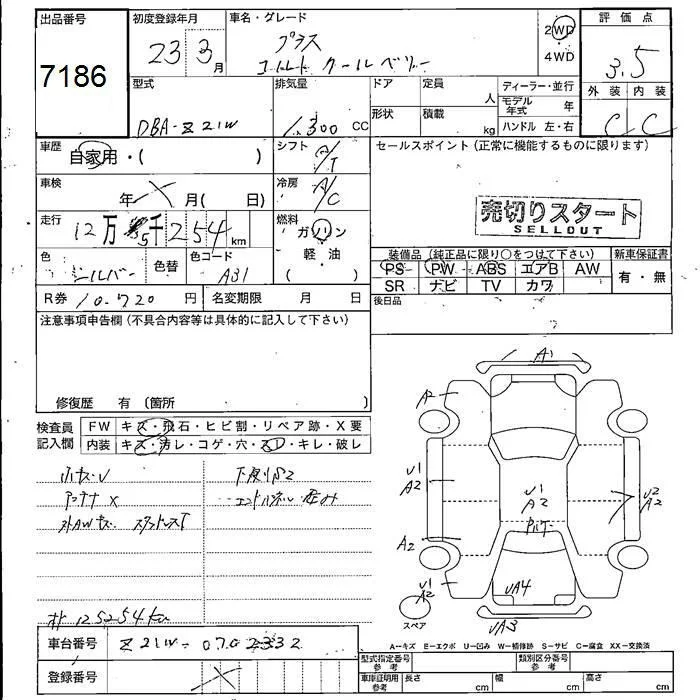 出品番号
7186
初度登録年月
23 3月
車名・グレード
プラス
コルト クールベリー
2WD
4WD
評価点
3.5
外装 内装
C C
型式
DBA-Z21W
排気量
1,300 CC
ドア
定員
人
形状
積載
kg
ディーラー・並行
モデル年式 年
ハンドル 左・右
車歴
自家用・( )
シフト
A/T
セールスポイント (正常に機能するものに限ります)
車検
年 月( 日)
冷房
A/C
売切りスタート
SELLOUT
走行
12万 5千 254 km
燃料
ガソリン
軽油
( )
色
シルバー
色替
色コード
A31
装備品 (純正品に限り○をつけて下さい)
新車保証書
PS PW ABS エアB AW
SR ナビ TV カワ
有・無
R券 10.720 円
名変期限 月 日
後日品
注意事項申告欄 (不具合内容等は具体的に記入して下さい)
修復歴 有 〔箇所 〕
検査員
記入欄
FW キズ・飛石・ヒビ割・リペア跡・X要
内装 キズ・汚レ・コゲ・穴・スレ・キレ・破レ
小キズ・U
アンテナ X
外AWキズ スタッドレスT
下廻りS2
エンドルネル 歪み
オド 125254km
A1
A2
U1
A2
A2
U1
A2
U1
A2
U2
A2
UA4
UA3
スペア
A-キズ E-エクボ U-凹み W-補修跡 S-サビ C-腐食 XX-交換済
車台番号
Z21W-0702332
登録番号
型式指定番号
参考
類別区分番号
参考
車庫証明用
参考
長さ cm
幅 cm
高さ cm